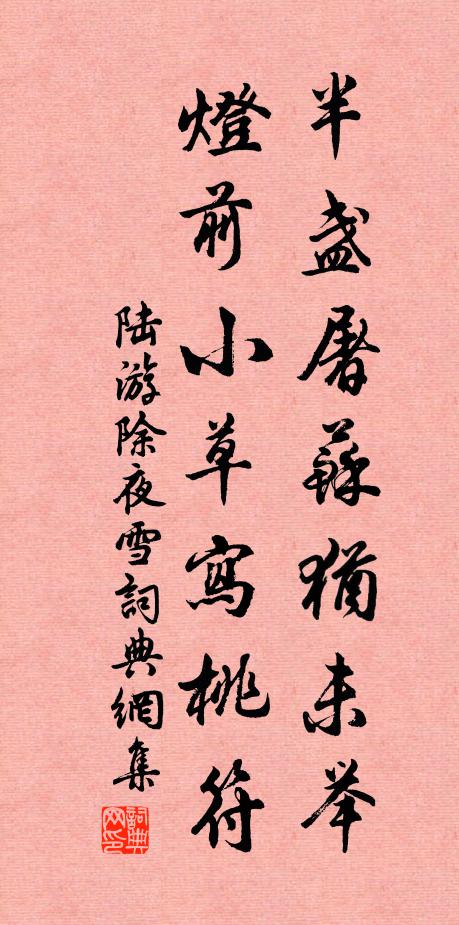 半盏屠蘇猶未举
燈前小草寫桃符
陆游除夜雪詞典網集
詞典
网印